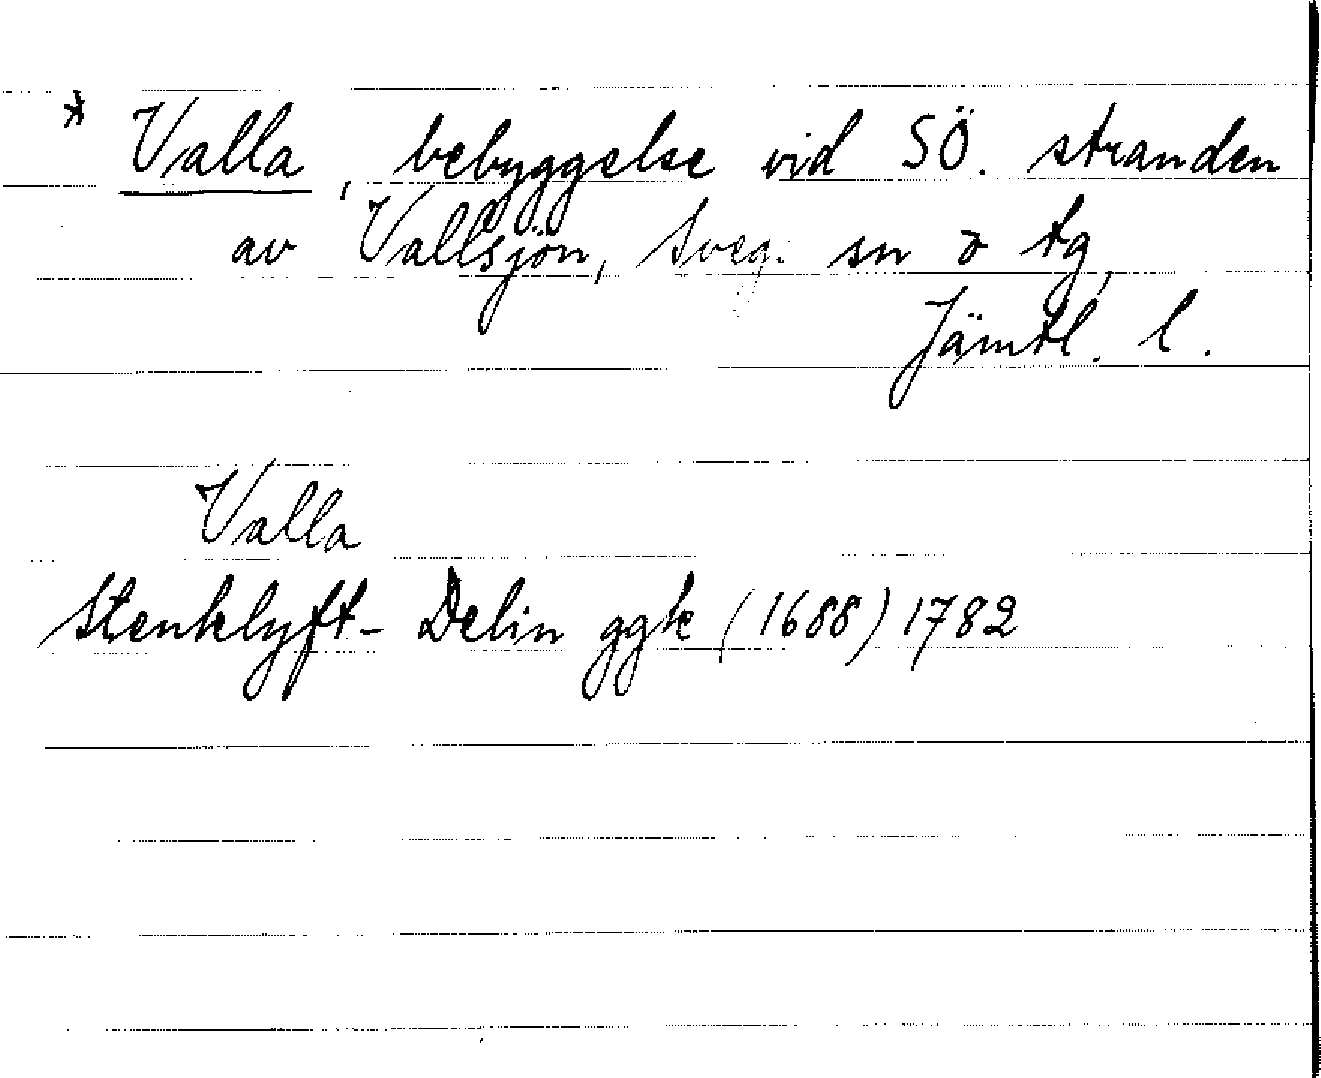 * Valla, bebyggelse vid SÖ. stranden
av Vallsjön, Sveg. sn o tg,
Jämtl. l.
Valla
Stenklyft- Delin ggk (1688) 1782